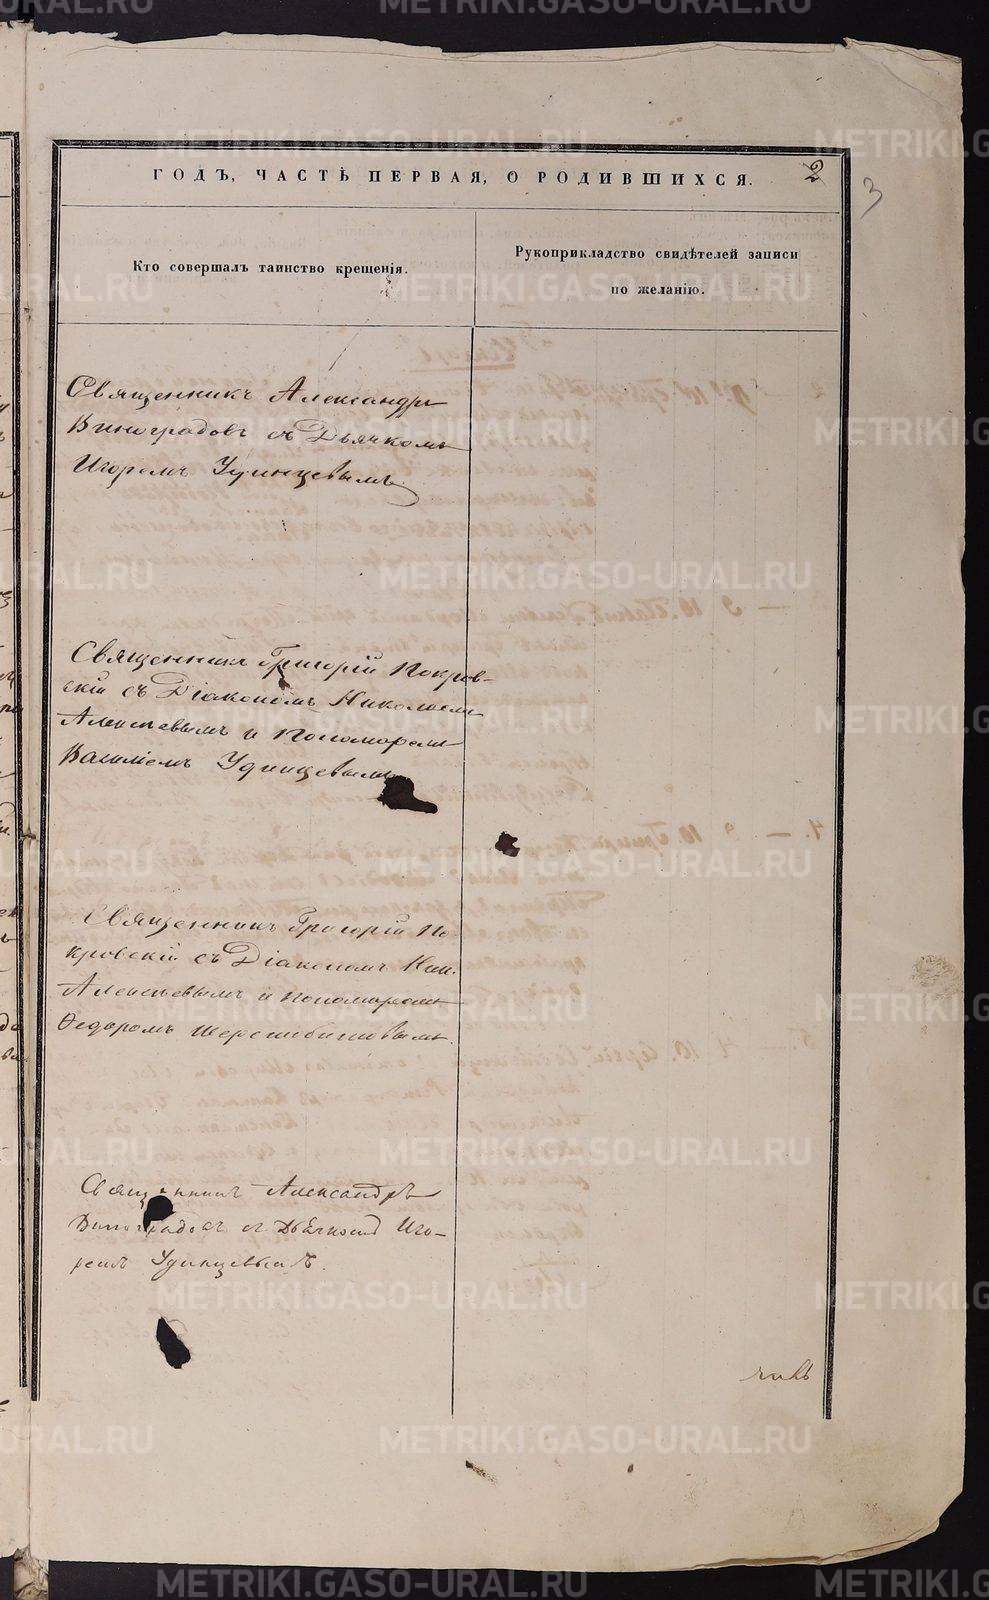 ГОДЪ, ЧАСТЬ ПЕРВАЯ, О РОДИВШИХСЯ.
2
3
Кто совершалъ таинство крещенія.
Рукоприкладство свидѣтелей записи
по желанію.
Священникъ Александръ
Виноградовъ съ Дьячкомъ
Игоремъ Удинцевымъ.
Священникъ Григорій Покров-
скій съ Діакономъ Николаемъ
Алексѣевымъ и Пономаремъ
Василіемъ Удинцевымъ
Священникъ Григорій По-
кровскій съ Діакономъ Ник.
Алексѣевымъ и Пономаремъ
Ѳедоромъ
Священникъ Александръ
Виноградовъ съ Дьячкомъ Иго-
ремъ Удинцевымъ.
METRIKI.GASO-URAL.RU